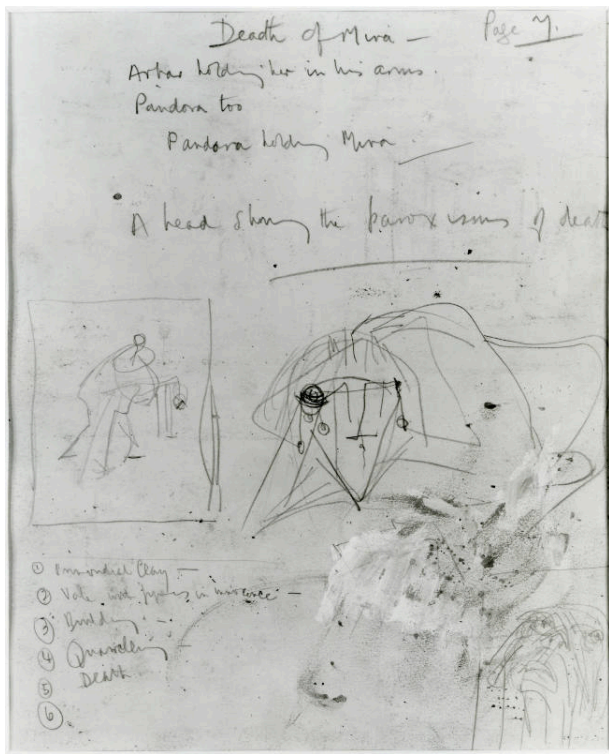 Death of Mira —
Page 7.
holding her in his arms.
Pandora too
Pandora holding Mira
A head showing the paroxisms of death
① Clay —
② Vale with in innocence —
③ Building —
④ Quarrelling
⑤ Death
⑥